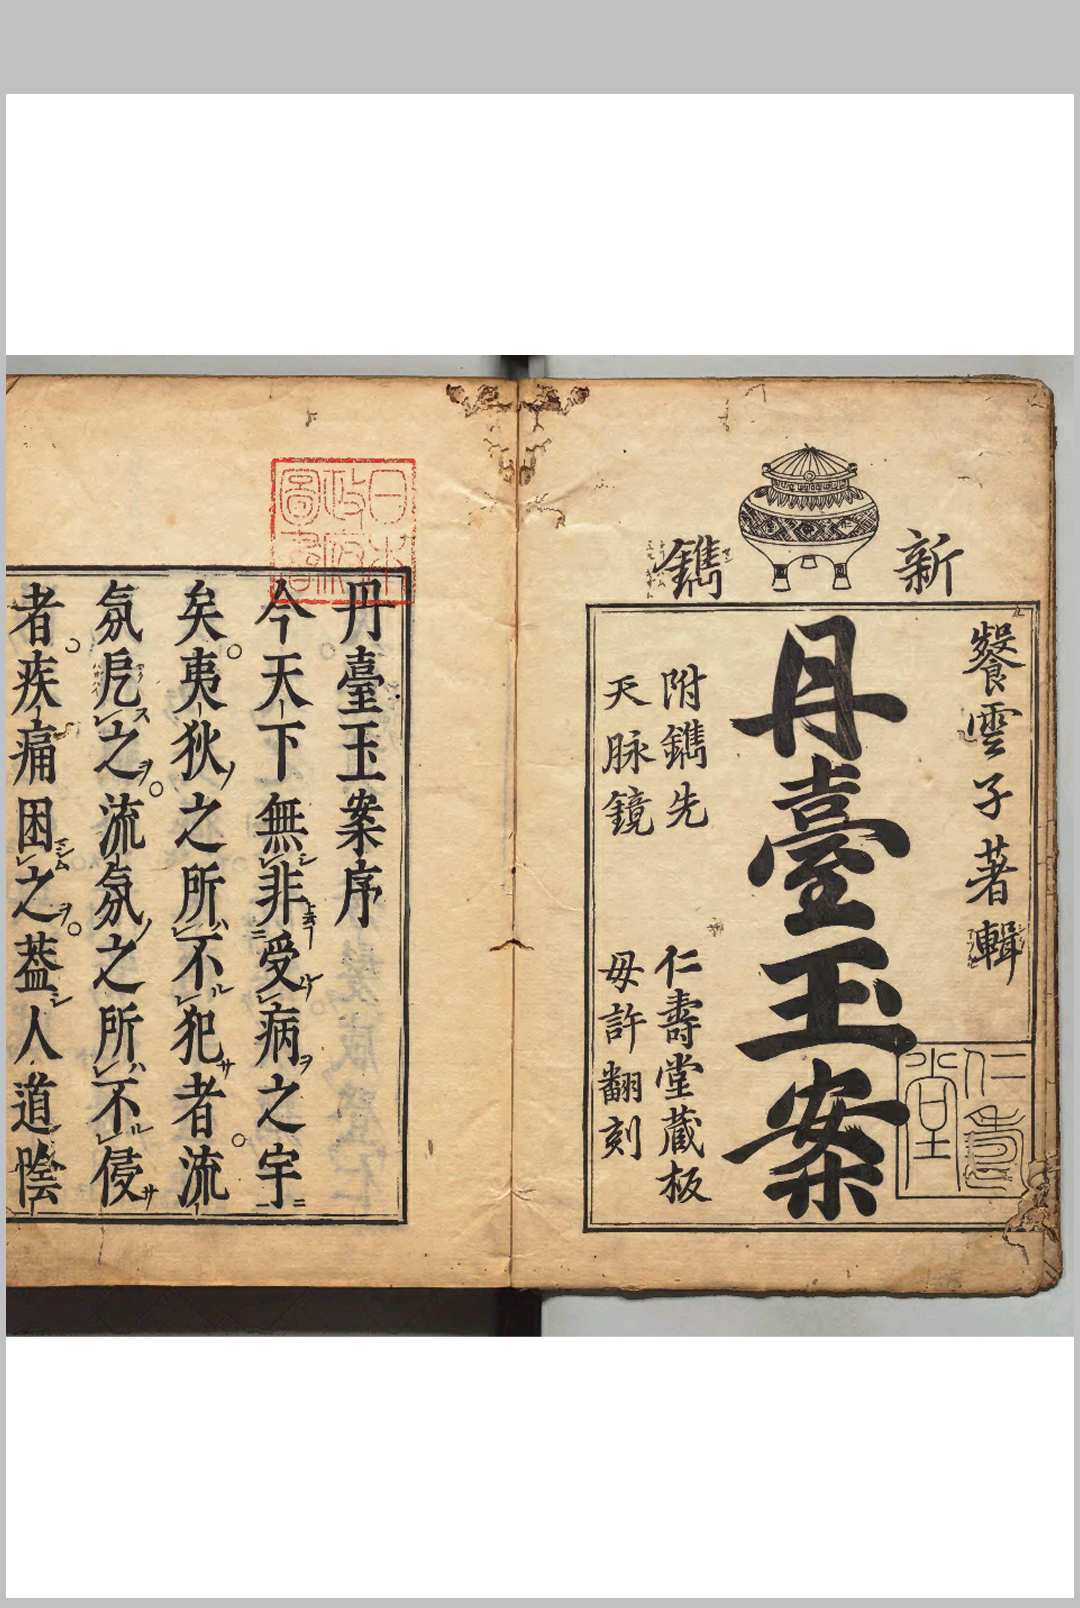 新鐫
餐雲子著輯
丹臺玉案
附鐫先
天脉鏡
仁壽堂藏板
毋許翻刻
仁壽堂
日本政府圖書
丹臺玉案序
今天下無非受病之宇
矣夷狄之所不犯者流
氛戹之流氛之所不侵
者疾痛困之葢人道陰